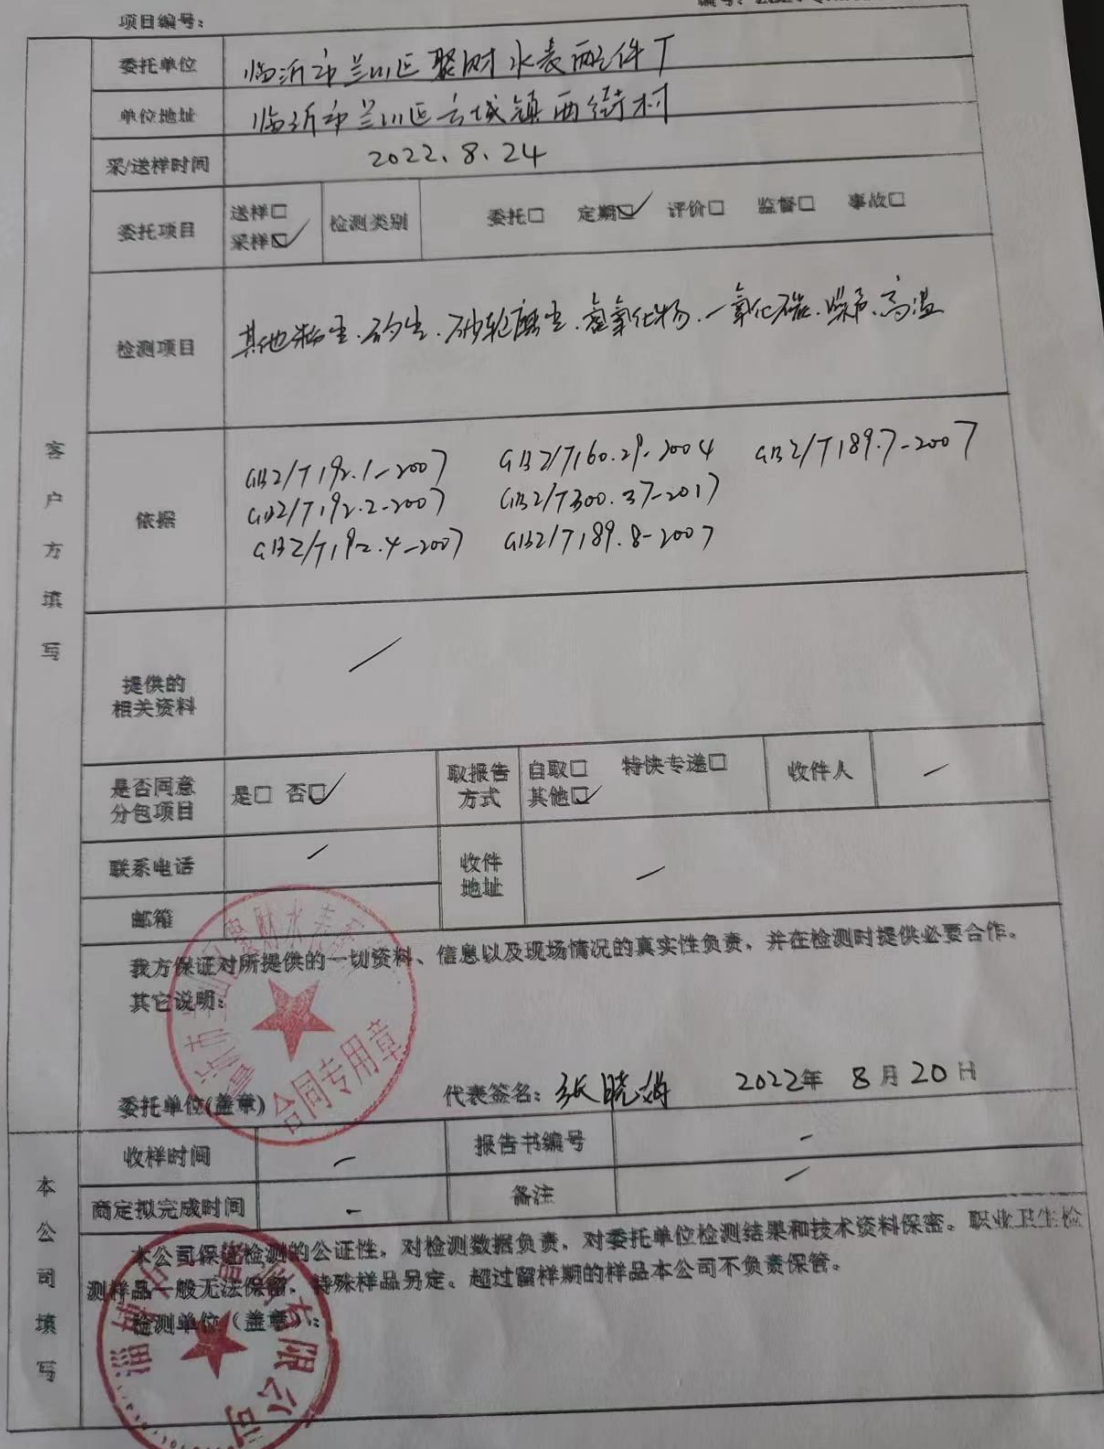 项目编号：
委托单位 临沂市兰山区聚财水表配件厂
单位地址 临沂市兰山区方城镇西街村
采/送样时间 2022.8.24
委托项目 送样□ 采样☑ 检测类别 委托□ 定期☑ 评价□ 监督□ 事故□
检测项目 其他粉尘、矽尘、砂轮磨尘、氮氧化物、一氧化碳、噪声、高温
客户方填写
依据
GBZ/T192.1-2007 GBZ/T160.29-2004 GBZ/T189.7-2007
GBZ/T192.2-2007 GBZ/T300.37-2017
GBZ/T192.4-2007 GBZ/T189.8-2007
提供的
相关资料 /
是否同意
分包项目 是□ 否☑
取报告
方式 自取□ 特快专递□
其他☑
收件人 /
联系电话 /
收件
地址 /
邮箱
我方保证对所提供的一切资料、信息以及现场情况的真实性负责，并在检测时提供必要合作。
其它说明：
合同专用章
委托单位(盖章) 代表签名：张晓 2022年 8月20日
本公司填写
收样时间 — 报告书编号 —
商定拟完成时间 — 备注 —
本公司保证检测的公证性，对检测数据负责，对委托单位检测结果和技术资料保密。职业卫生检
测样品一般无法保留，特殊样品另定。超过留样期的样品本公司不负责保管。
检测单位（盖章）：
有限公司